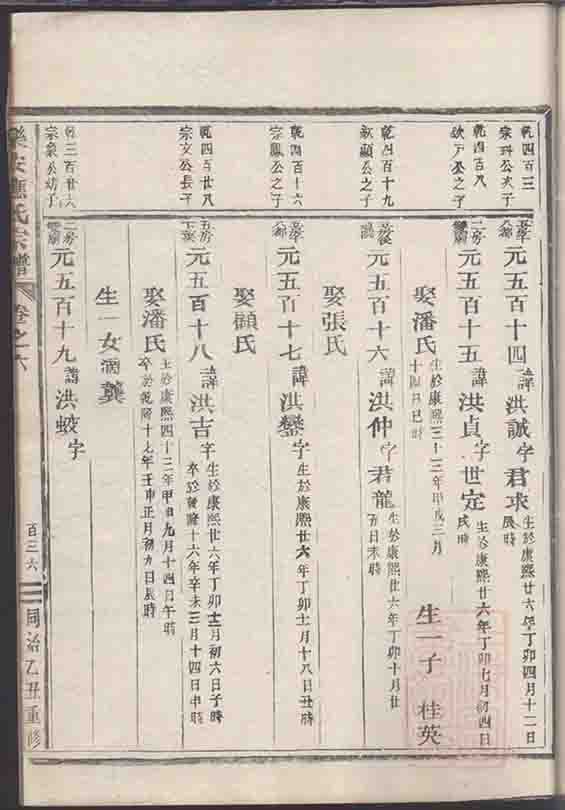 乾四百三
宗科公次子
元五百十四 諱洪誠 字君求 生於康熙廿六年丁卯四月十二日
辰時
乾四百八
公之子
二房
元五百十五 諱洪貞 字世定 生於康熙廿六年丁卯七月初四日
戌時
娶潘氏 生於康熙三十三年甲戌三月
十四日巳時
生一子 桂英
乾四百十九
欽顯公之子
元五百十六 諱洪仲 字君龍 生於康熙廿六年丁卯十月廿
五日未時
娶張氏
乾四百十六
宗鳳公之子
元五百十七 諱洪鑾 字 生於康熙廿六年丁卯十一月十八日丑時
娶顧氏
乾四百廿八
宗文公長子
五房
元五百十八 諱洪吉 字 生於康熙廿六年丁卯十二月初六日子時
卒於乾隆十六年辛未三月十四日申時
娶潘氏 生於康熙四十三年甲申九月十四日午時
卒於乾隆十七年壬申正月初九日辰時
生一女適龔
乾三百廿六
宗象公幼子
二房
元五百十九 諱洪蛟 字
樂安 氏宗譜 卷之六 百三六 同治乙丑重修